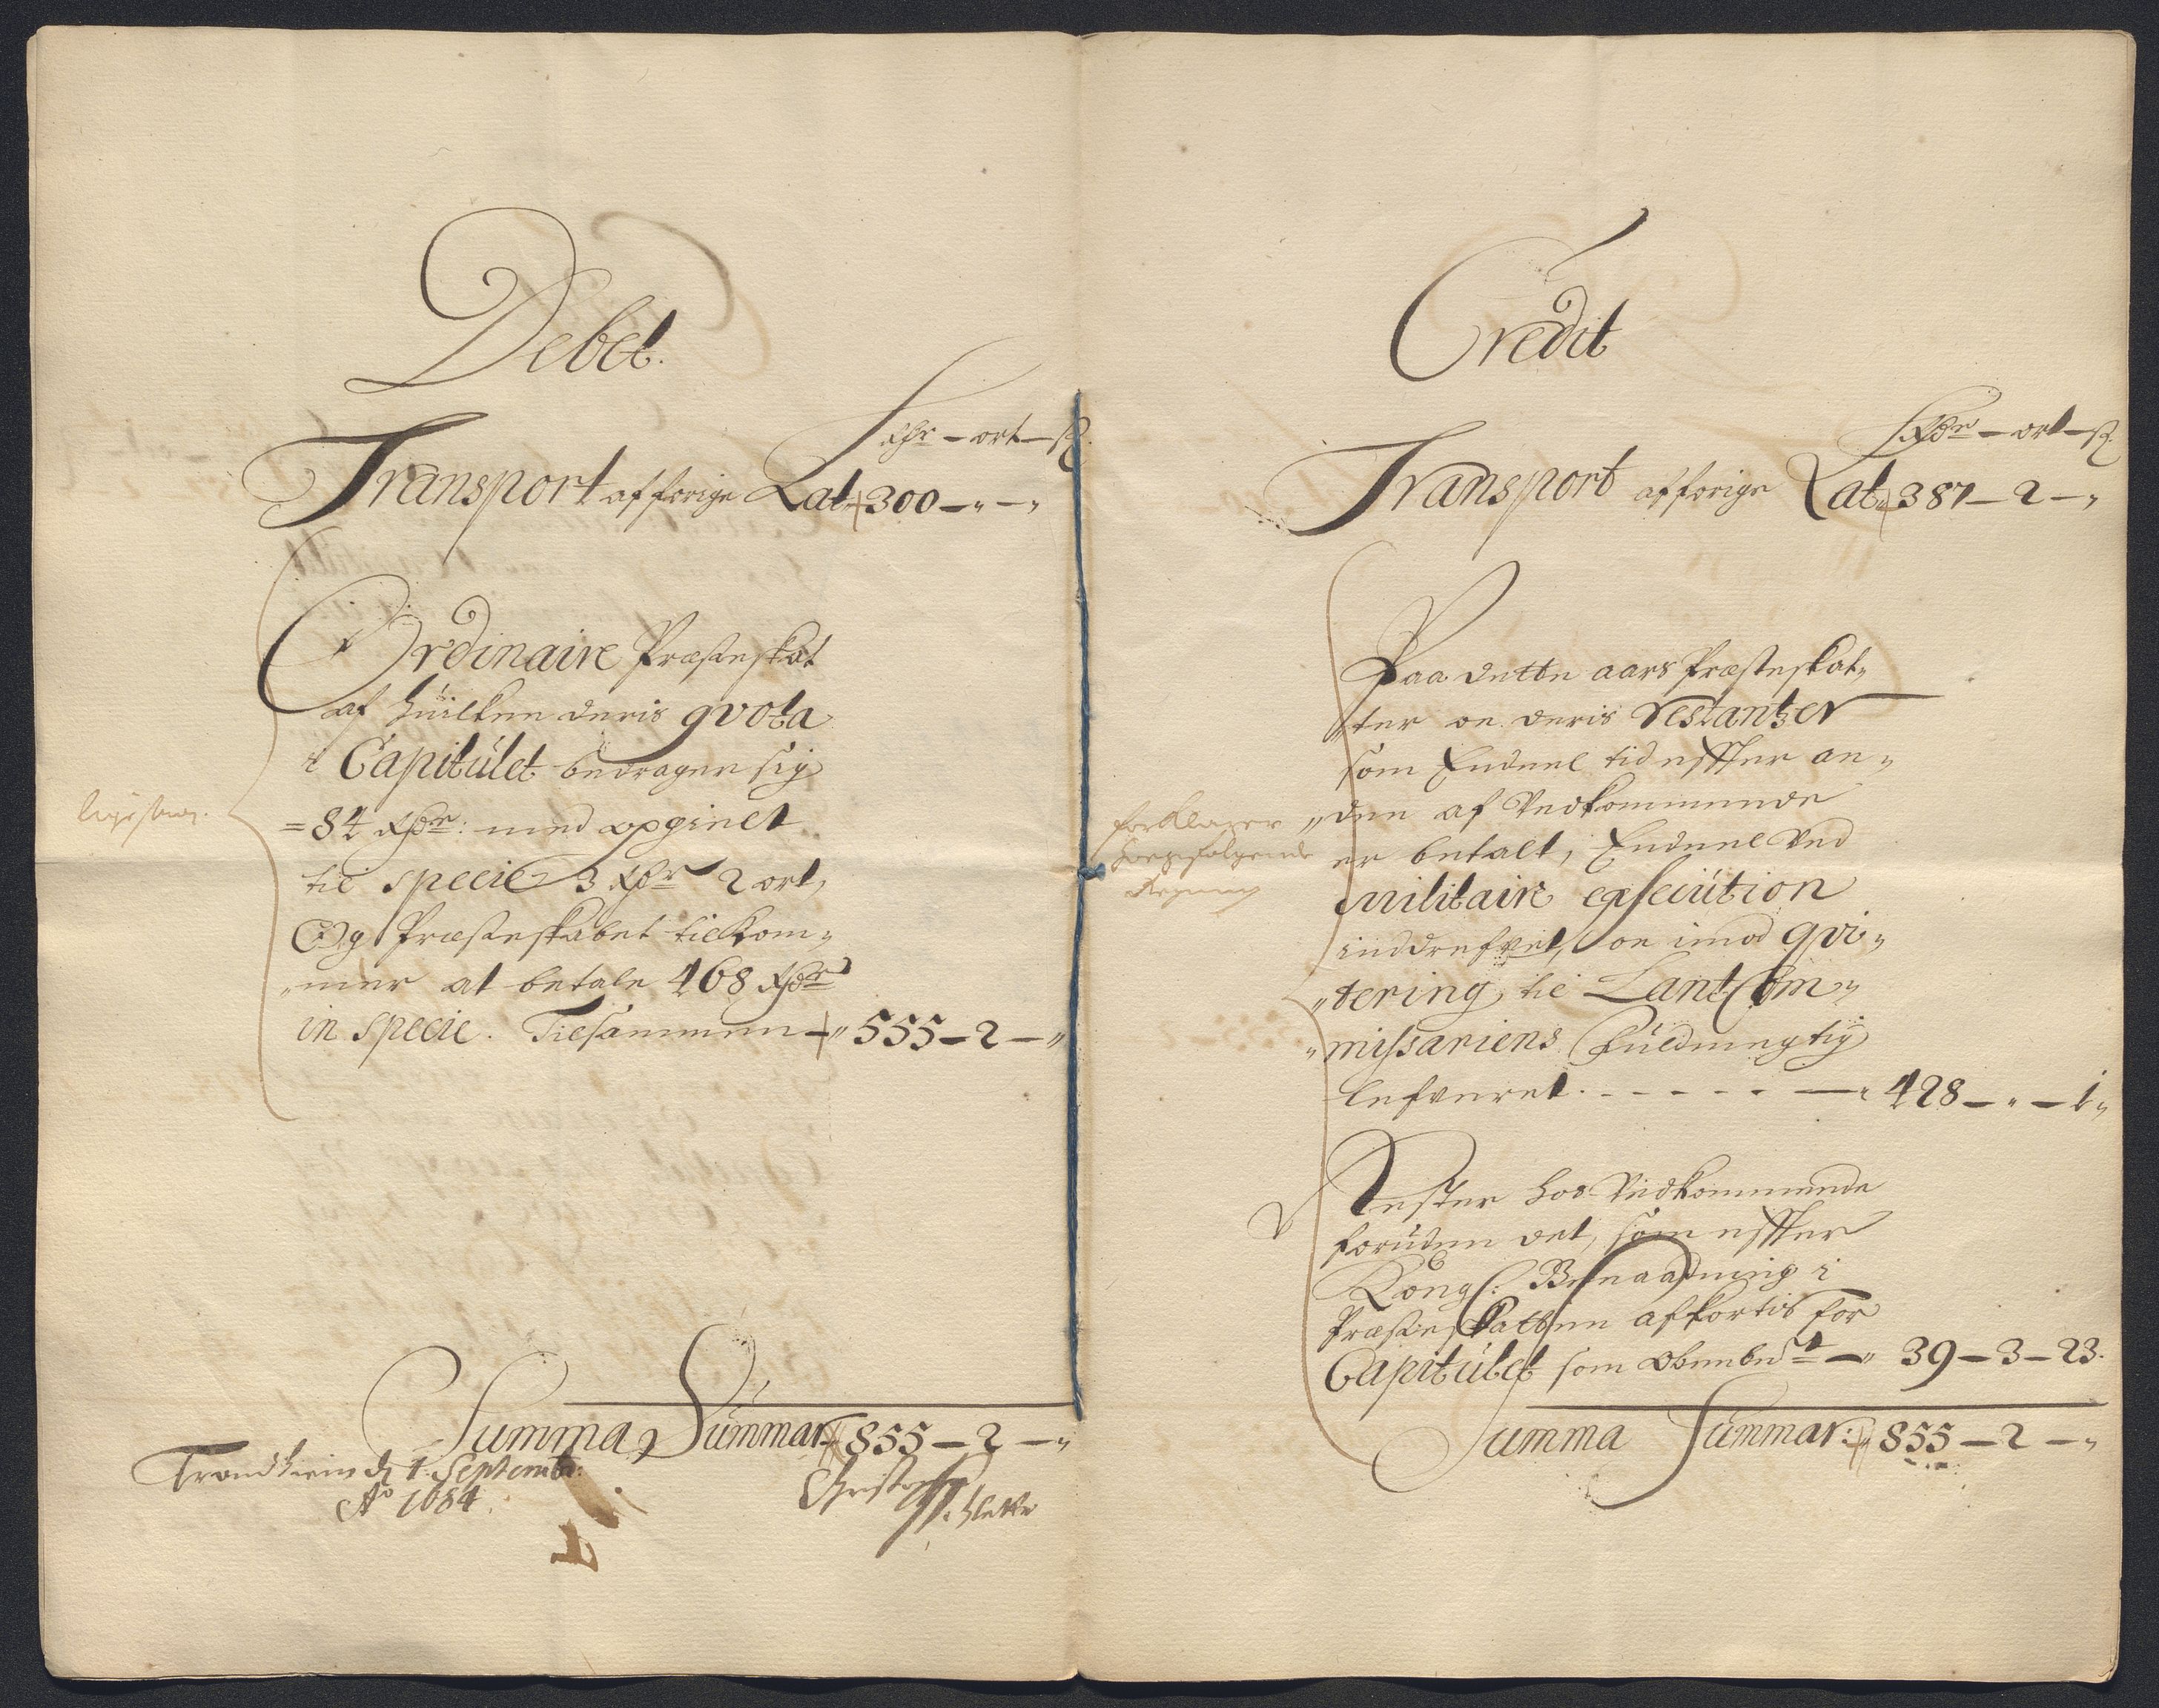 Debet.
Rdr – ort – ß.
Transport af forige Lat. 300 – „ – „
Ordinaire Præsteskat
af huilken deris qvota
i Capitulet bedrager sig
84 Rdr: med opgield
til specie 3 Rdr 2 ort,
Og Præsteskabet tilkom„
„mer at betale 468 Rdr
in specie. Tilsammen – „ 555 – 2 – „
Summa Summar. 855 – 2 – „
Trondheim d. 1. Septembr:
Ao 1684.
Credit
Rdr – ort – ß.
Transport af forige Lat. 387 – 2 – „
Paa dette aars Præsteskat„
„ter oc deris restantzer
som Endeel tid effter an„
„den af Vedkommende
er betalt, Endeel Ved
militaire execution
inddrefvet, oc imod qvi„
„tering til Lant Com„
„missariens fuldmegtig
lefveret. – – – – – – „ 428 – „ – 1 „
forklarer
hosfølgende
Regning
Rester hos Vedkommende
foruden det, som effter
Kongl: Benaadning i
Præsteskatten afkortis for
Capitulet som obenbdt – „ 39 – 3 – 23.
Summa Summar: 855 – 2 – „